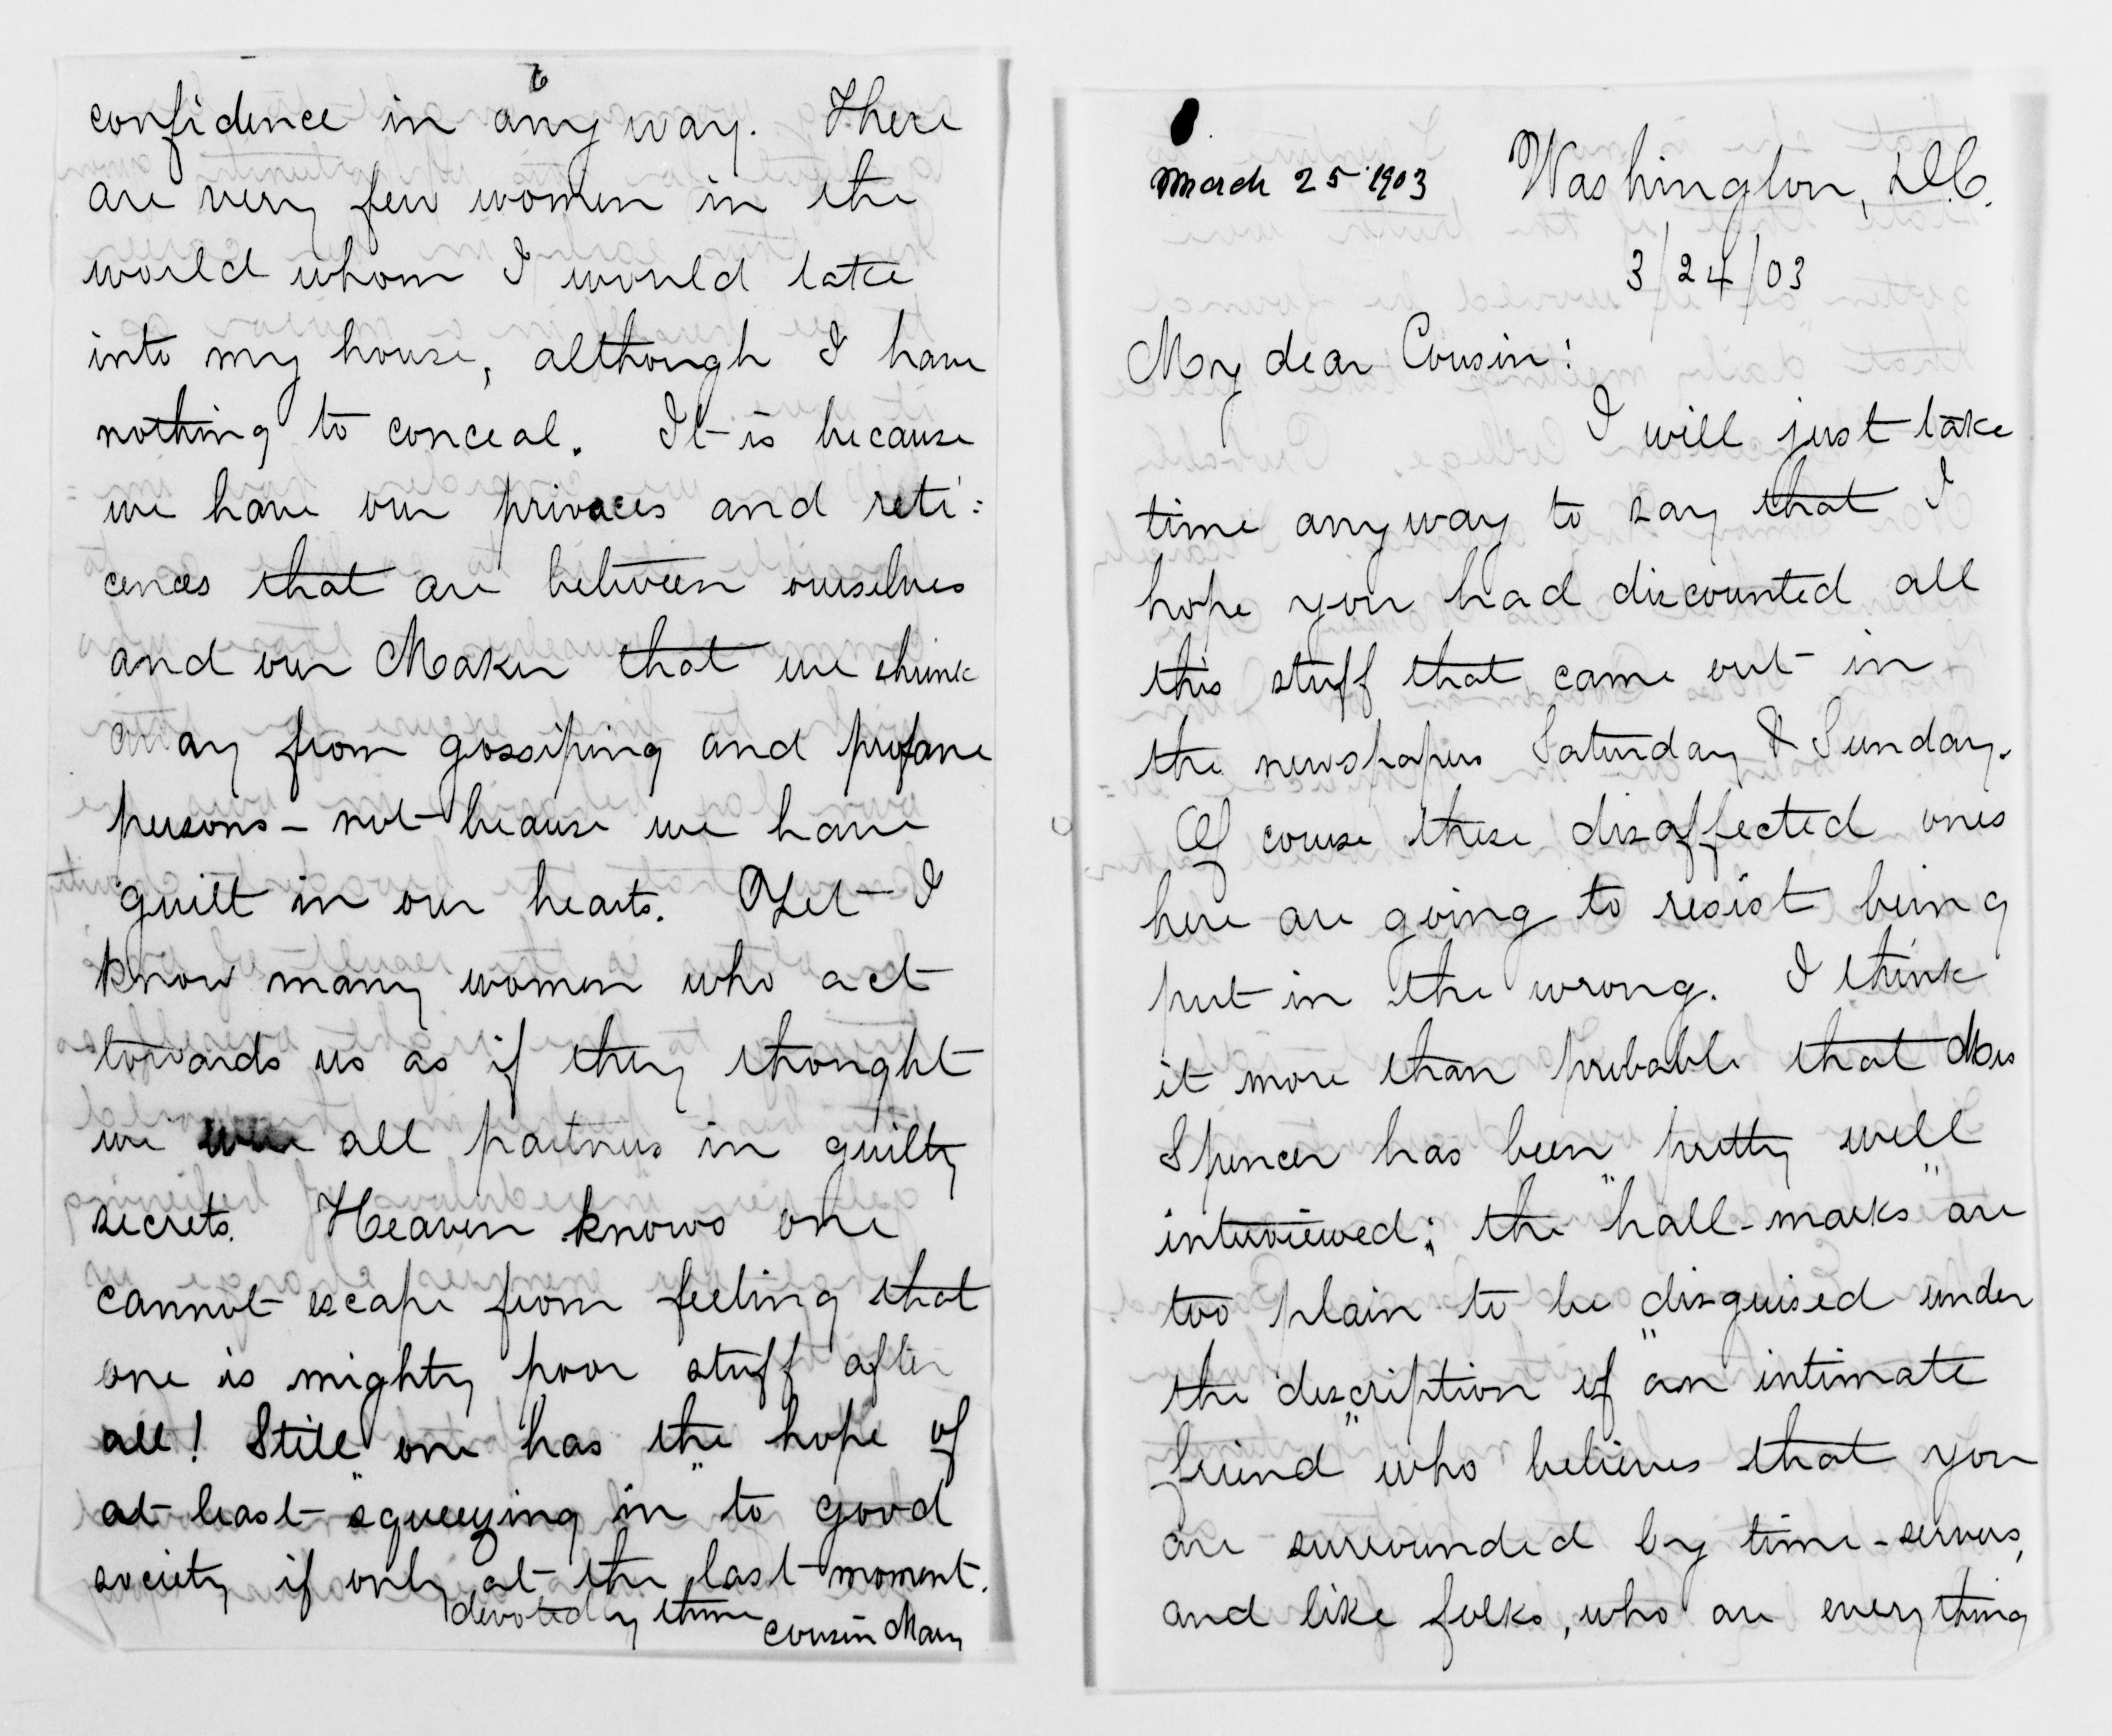 6
confidence in any way. There
are very few women in the
world whom I would take
into my house, although I have
nothing to conceal. It is because
we have our privaces and reti:
cences that are between ourselves
and our Maker that we shrink
away from gossiping and profane
persons – not because we have
guilt in our hearts. Yet I
know many women who act
towards us as if they thought
we were all partners in guilty
secrets. Heaven knows one
cannot escape from feeling that
one is mighty poor stuff after
all! Still one has the hope of
at least "squeezing in" to good
society if only at the last moment.
devotedly thine
Cousin Mary
March 25 1903 Washington, D.C.
3/24/03
My dear Cousin:
I will just take
time anyway to say that I
hope you had discounted all
this stuff that came out in
the newspapers Saturday & Sunday.
Of course these disaffected ones
here are going to resist being
put in the wrong. I think
it more than probable that Mrs
Spencer has been pretty well
interviewed; the "hall-marks" are
too plain to be disguised under
the description of "an intimate
friend" who believes that you
are surrounded by time-servers,
and like folks, who are everything